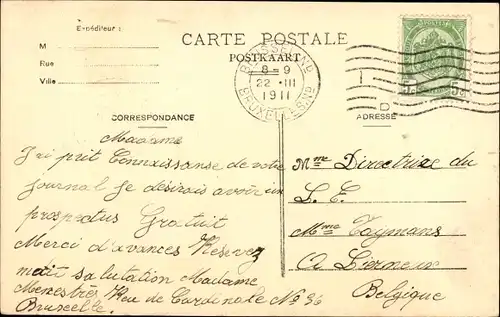 Expéditeur :
M
Rue
Ville
CARTE POSTALE
POSTKAART
BRUSSEL
8-9
22 III
1911
BRUXELLES
5c 5c
D
CORRESPONDANCE
ADRESSE
Madame
J'ai prit Connaissanse de votre
journal Je désirais avoir un
prospectus Gratuit
Merci d'avances
salutation Madame
Rue de Cardinale No 36
Bruxelle.
Mme Directrise du
L. E.
Mme Taymans
a Lierneux
Belgique